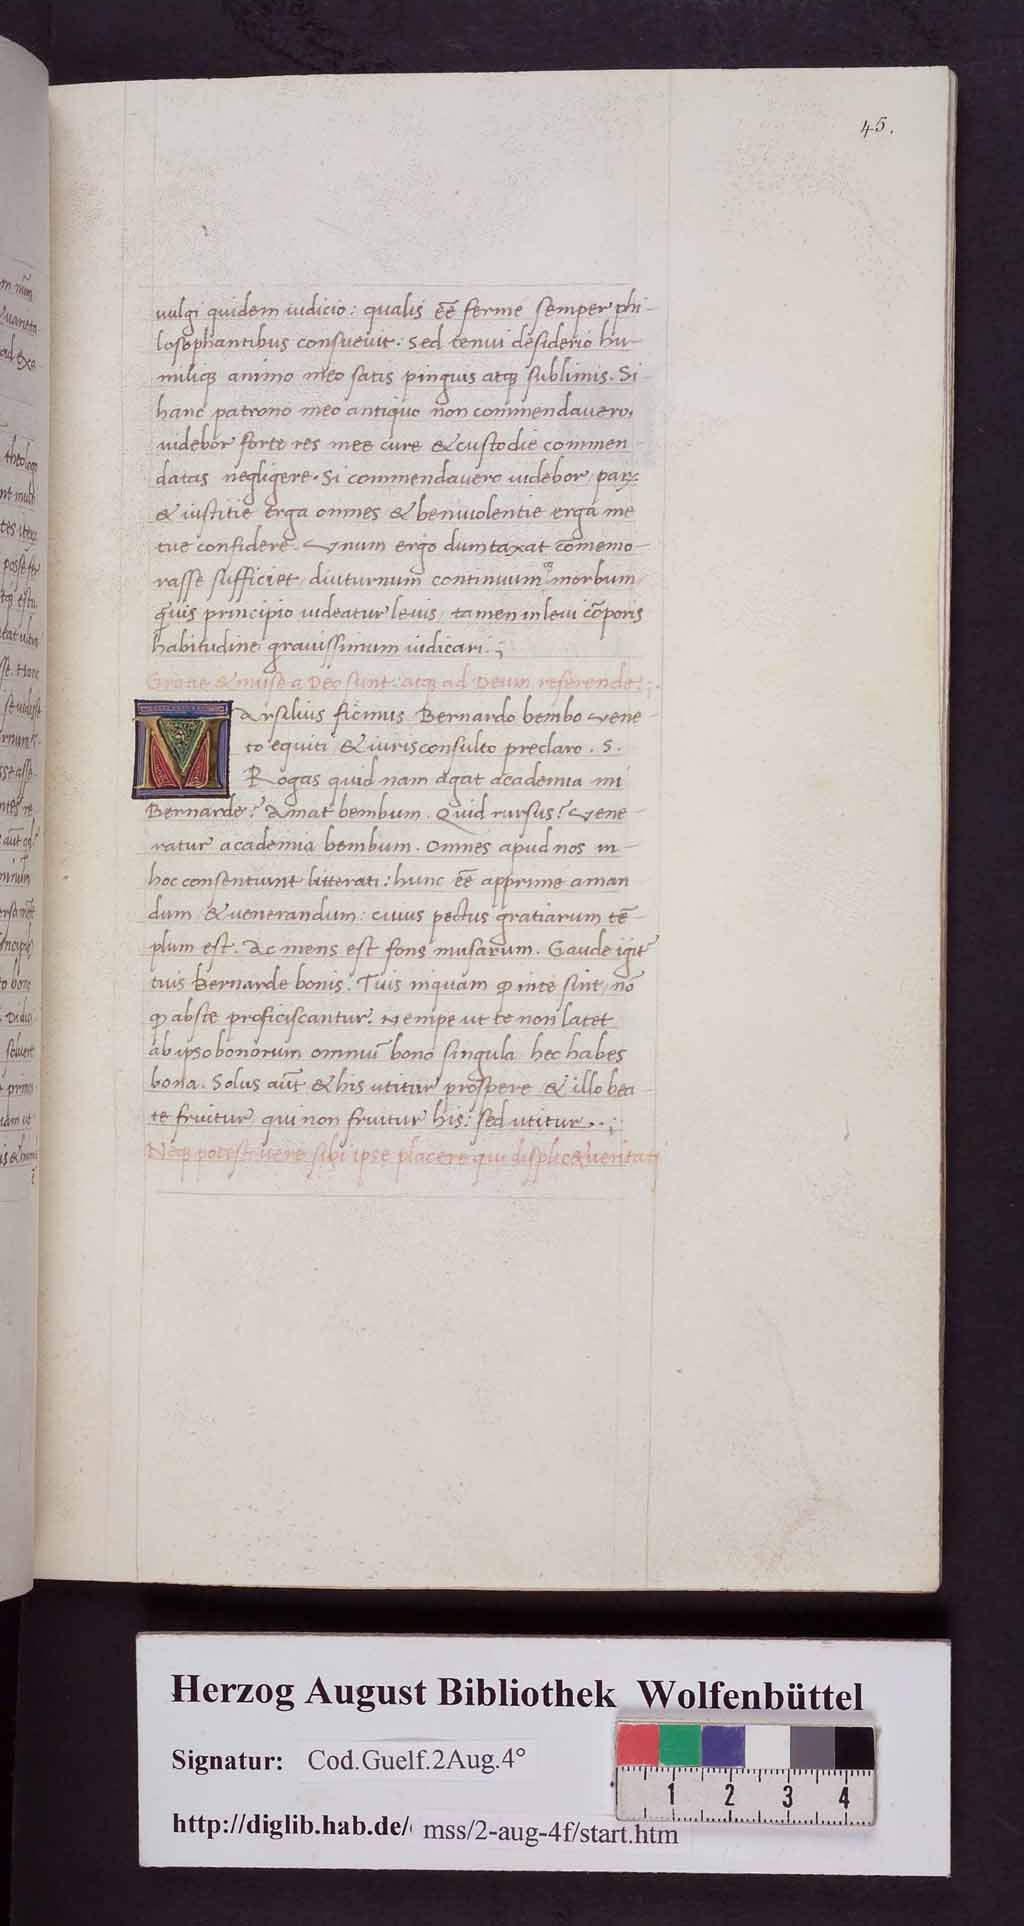 45.
vulgi quidem iudicio: qualis eē ferme semper phi-
losophantibus consuevit. Sed tenui desiderio hu-
miliq; animo meo satis pinguis atq; sublimis. Si
hanc patrono meo antiquo non commendavero,
videbor forte res mee cure & custodie commen
datas negligere. Si commendavero videbor, parꝫ
& iustitie erga omnes & benivolentie erga me
tue confidere. Vnum ergo dumtaxat cōmemo-
rasse sufficiet, diuturnum continuumq; morbum
q̄vis principio videatur levis, tamen in levi cōporis
habitudine gravissimum iudicari..;
Gratie & muse a Deo sunt: atq; ad Deum referende.;.
Marsilius ficinus Bernardo bembo vene-
to equiti & iurisconsulto preclaro. S.
Rogas quid nam agat academia mi
Bernarde? Amat bembum. Quid rursus? Vene-
ratur academia bembum. Omnes apud nos in-
hoc consentiunt litterati: hunc eē apprime aman
dum & venerandum: cuius pectus gratiarum tē-
plum est. Ac mens est fons musarum. Gaude igit̄
tuis Bernarde bonis. Tuis inquam ꝙ in te sint, nō
ꝙ abste proficiscantur. Nempe ut te non latet
ab ipso bonorum omniū bono singula hec habes
bona. Solus aūt & his utitur prospere & illo bea-
te fruitur, qui non fruitur his: sed utitur..;
Neq; potest vere sibi ipse placere qui displicet veritati
Herzog August Bibliothek Wolfenbüttel
Signatur: Cod.Guelf.2Aug.4°
http://diglib.hab.de/ mss/2-aug-4f/start.htm
1 2 3 4